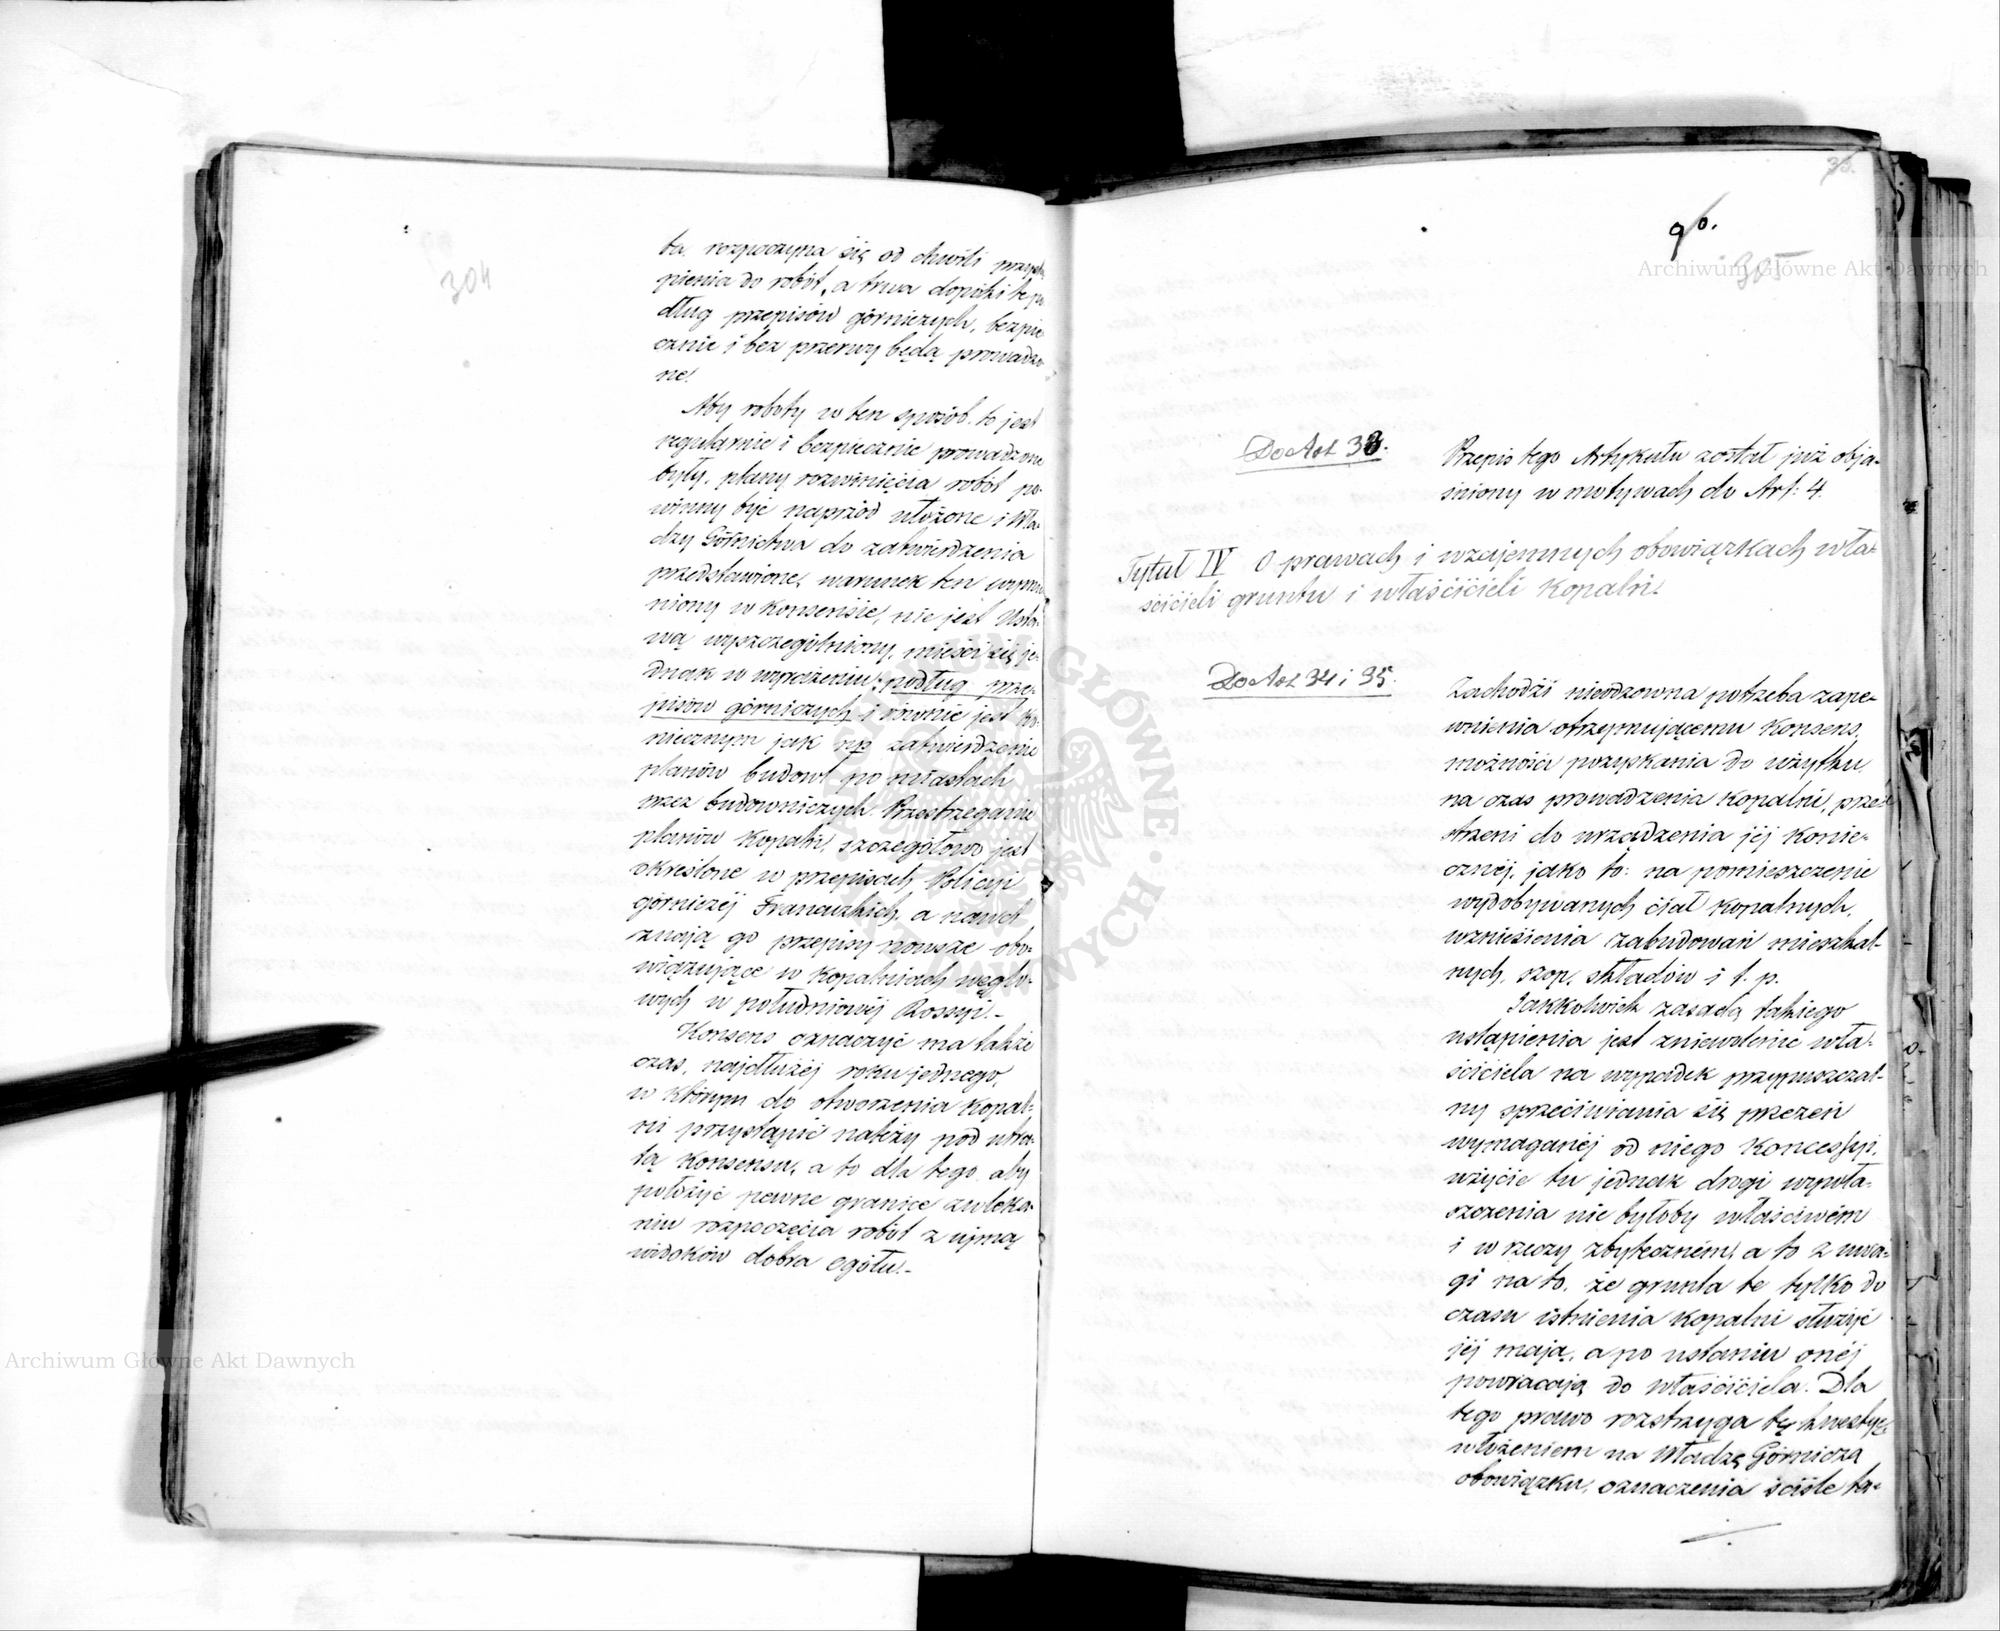 304
ta, rozpoczyna się od chwili przystą
pienia do robót, a trwa dopóki te po
dług przepisów górniczych, bezpie
cznie i bez przerwy będą prowadzo
ne.
Aby roboty w ten sposób, to jest
regularnie i bezpiecznie prowadzone
były, plany rozwinięcia robót po-
winny być naprzód ułożone i Wła-
dzy Górnictwa do zatwierdzenia
przedstawione, warunek ten wymie
niony w konsensie, nie jest Usta-
wą wyszczególniony, mieści się je-
dnak w wyrażeniu: podług prze-
pisów górniczych i równie jest ko-
niecznym jak np zatwierdzenie
planów budowl po miastach
przez budowniczych. Przestrzeganie
planów kopalń, szczegółowo jest
określone w przepisach Policyi
górniczéj Francuzkich, a nawet
znają go przepisy nowsze obo-
wiązujące w kopalniach węglo-
wych w południowéj Rossyi.-
Konsens oznaczyć ma także
czas, najdłużéj roku jednego,
w którym do otworzenia kopal-
ni przystąpić należy pod utra-
tą konsensu, a to dla tego, aby
położyć pewne granice zwleka-
niu rozpoczęcia robót z ujmą
widoków dobra ogółu.-
35.
96.
305
Do Art 33.
Przepis tego Artykułu został już obja-
śniony w motywach do Art: 4.
Tytuł IV O prawach i wzajemnych obowiązkach wła-
ścicieli gruntu i właścicieli Kopalni.
Do Art 34 i 35.
Zachodzi nieodzowna potrzeba zape-
wnienia otrzymującemu Konsens,
możności pozyskania do użytku,
na czas prowadzenia Kopalni, prze-
strzeni do urządzenia jéj konie-
cznéj, jako to: na pomieszczenie
wydobywanych ciał kopalnych,
wzniesienia zabudowań mieszkal-
nych, szop, składów i t. p.
Jakkolwiek zasadą takiego
ustąpienia jest zniewolenie wła-
ściciela na wypadek przypuszczal-
ny sprzeciwiania się przezeń
wymaganéj od niego Koncessyi,
użycie tu jednak drogi wywła-
szczenia nie byłoby właściwém
i w rzeczy zbyteczném, a to z uwa-
gi na to, że grunta te tylko do
czasu istnienia kopalni służyć
jéj mają, a po ustaniu onéj
powracają do właściciela. Dla
tego prawo rozstrzyga tę kwestyę
włożeniem na Władzę Górniczą
obowiązku, oznaczenia ściśle ta-
Archiwum Główne Akt Dawnych
Archiwum Główne Akt Dawnych
ARCHIWUM GŁÓWNE AKT DAWNYCH